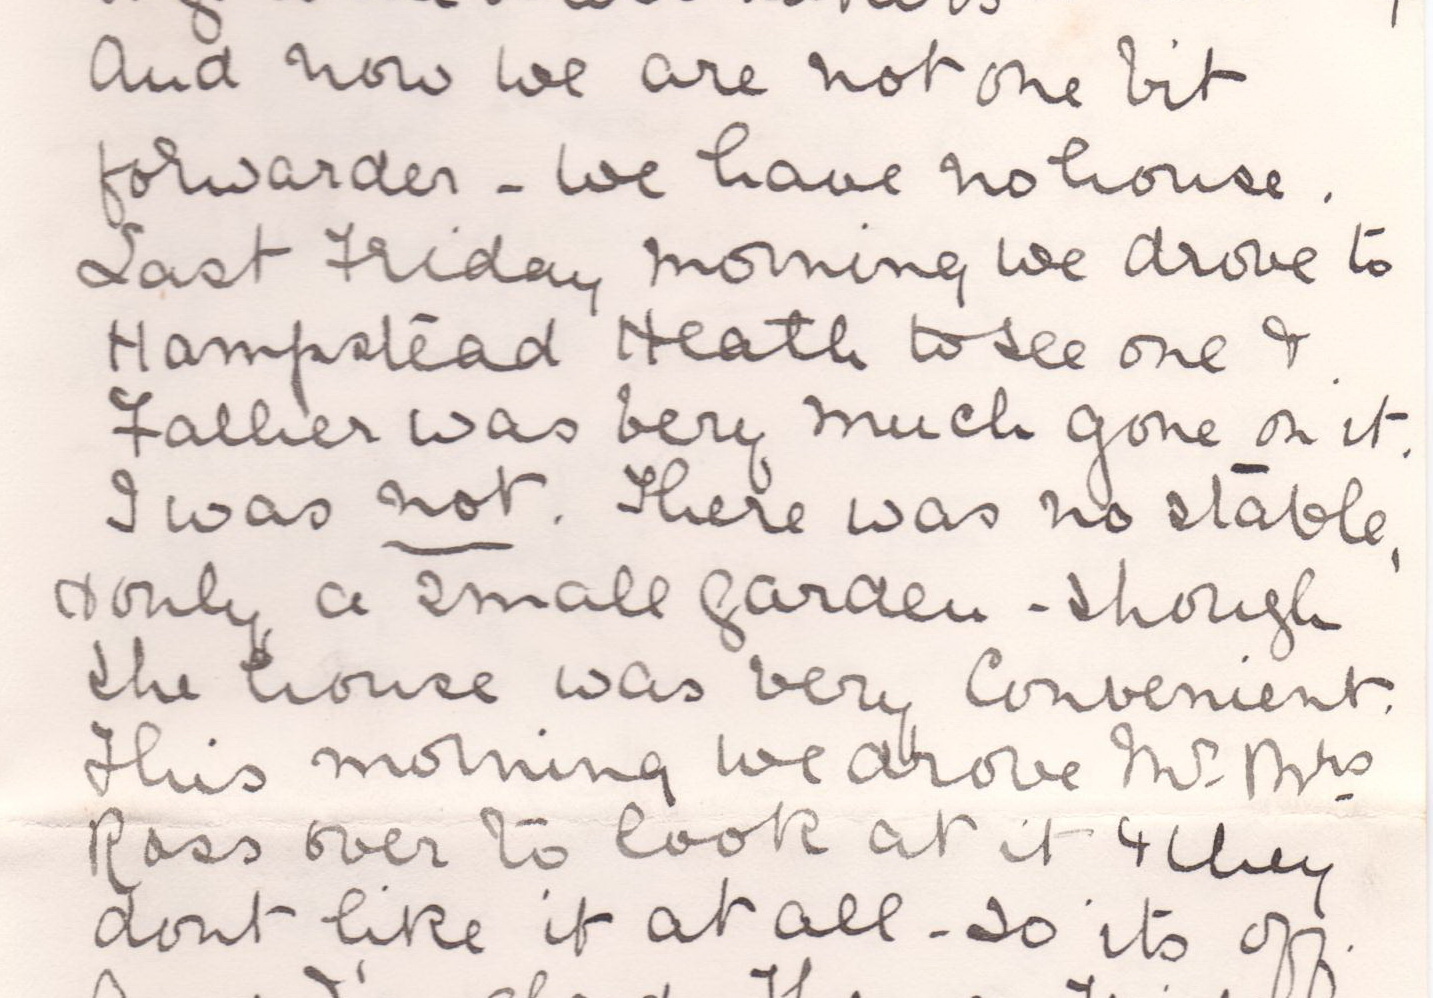 And now we are not one bit
forwarder - we have no house.
Last Friday morning we drove to
Hampstead Heath to see one &
Father was very much gone on it.
I was not. There was no stable,
& only a small garden - though
the house was very convenient.
This morning we drove Mr. Mrs
Ross over to look at it & they
dont like it at all - so its off.